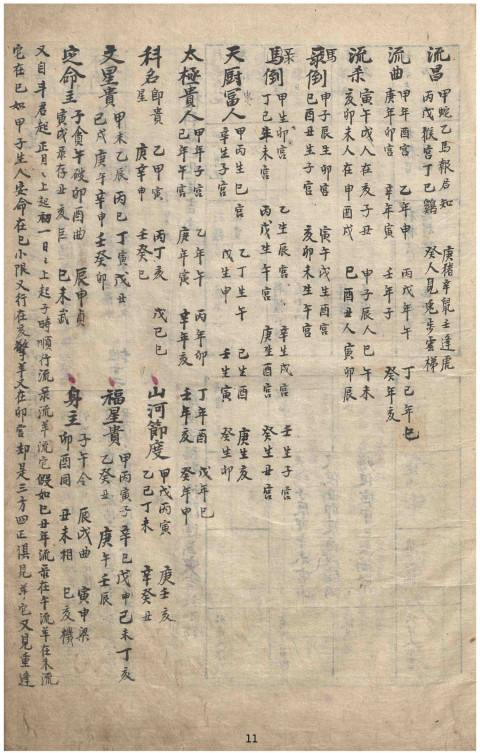 流昌 甲蛇乙馬報君知 丙戊猴宮丁巳鷄 庚猪辛鼠壬逢虎 癸人見兎步雲梯
流曲 甲年酉宮 乙年申 丙戊年午 丁己年巳 庚年卯宮 辛年寅 壬年子 癸年亥
流杀 寅午戌人在亥子丑 甲子辰人巳午未 亥卯未人在申酉戌 巳酉丑人寅卯辰
馬最倒 甲子辰生卯宮 寅午戌生酉宮 巳酉丑生子宮 亥卯未生午宮
馬倒 甲生卯宮 乙生辰宮 辛生戌宮 壬生子宮 丁己年未宮 丙戊生午宮 庚生酉宮 癸生丑宮
天厨富人 甲丙生巳宮 乙丁生午 己生酉 庚生亥 辛生子宮 戊生申 壬生寅 癸生卯
太極貴人 甲年子宮 乙年午 丙年卯 丁年酉 戊年巳 己年午宮 庚年寅 辛年亥 壬年亥 癸年申
科名即貴星 乙甲寅 丙丁亥 戊己巳 庚辛申 壬癸巳
山河節度 甲戊丙寅 庚壬亥 乙己丁未 辛癸丑
文星貴 甲未乙辰 丙巳丁寅戊丑 己戌庚午辛申壬癸卯
福星貴 甲丙寅子辛巳戊申己未丁亥 乙癸丑 庚午壬辰
定命主 子貪午破卯酉曲 辰申貞 寅戌彔存丑亥巨 巳未武
身主 子午令 辰戌曲 寅申梁 卯酉同 丑未相 巳亥機
又自斗君起正月上起初一日上起子時順行流彔流羊流它假如己丑年流彔在午流羊在未流
它在巳如甲子生人安命在巳小限又行在亥擎羊又在卯宮却是三方四正俱見羊它又見重逢
11